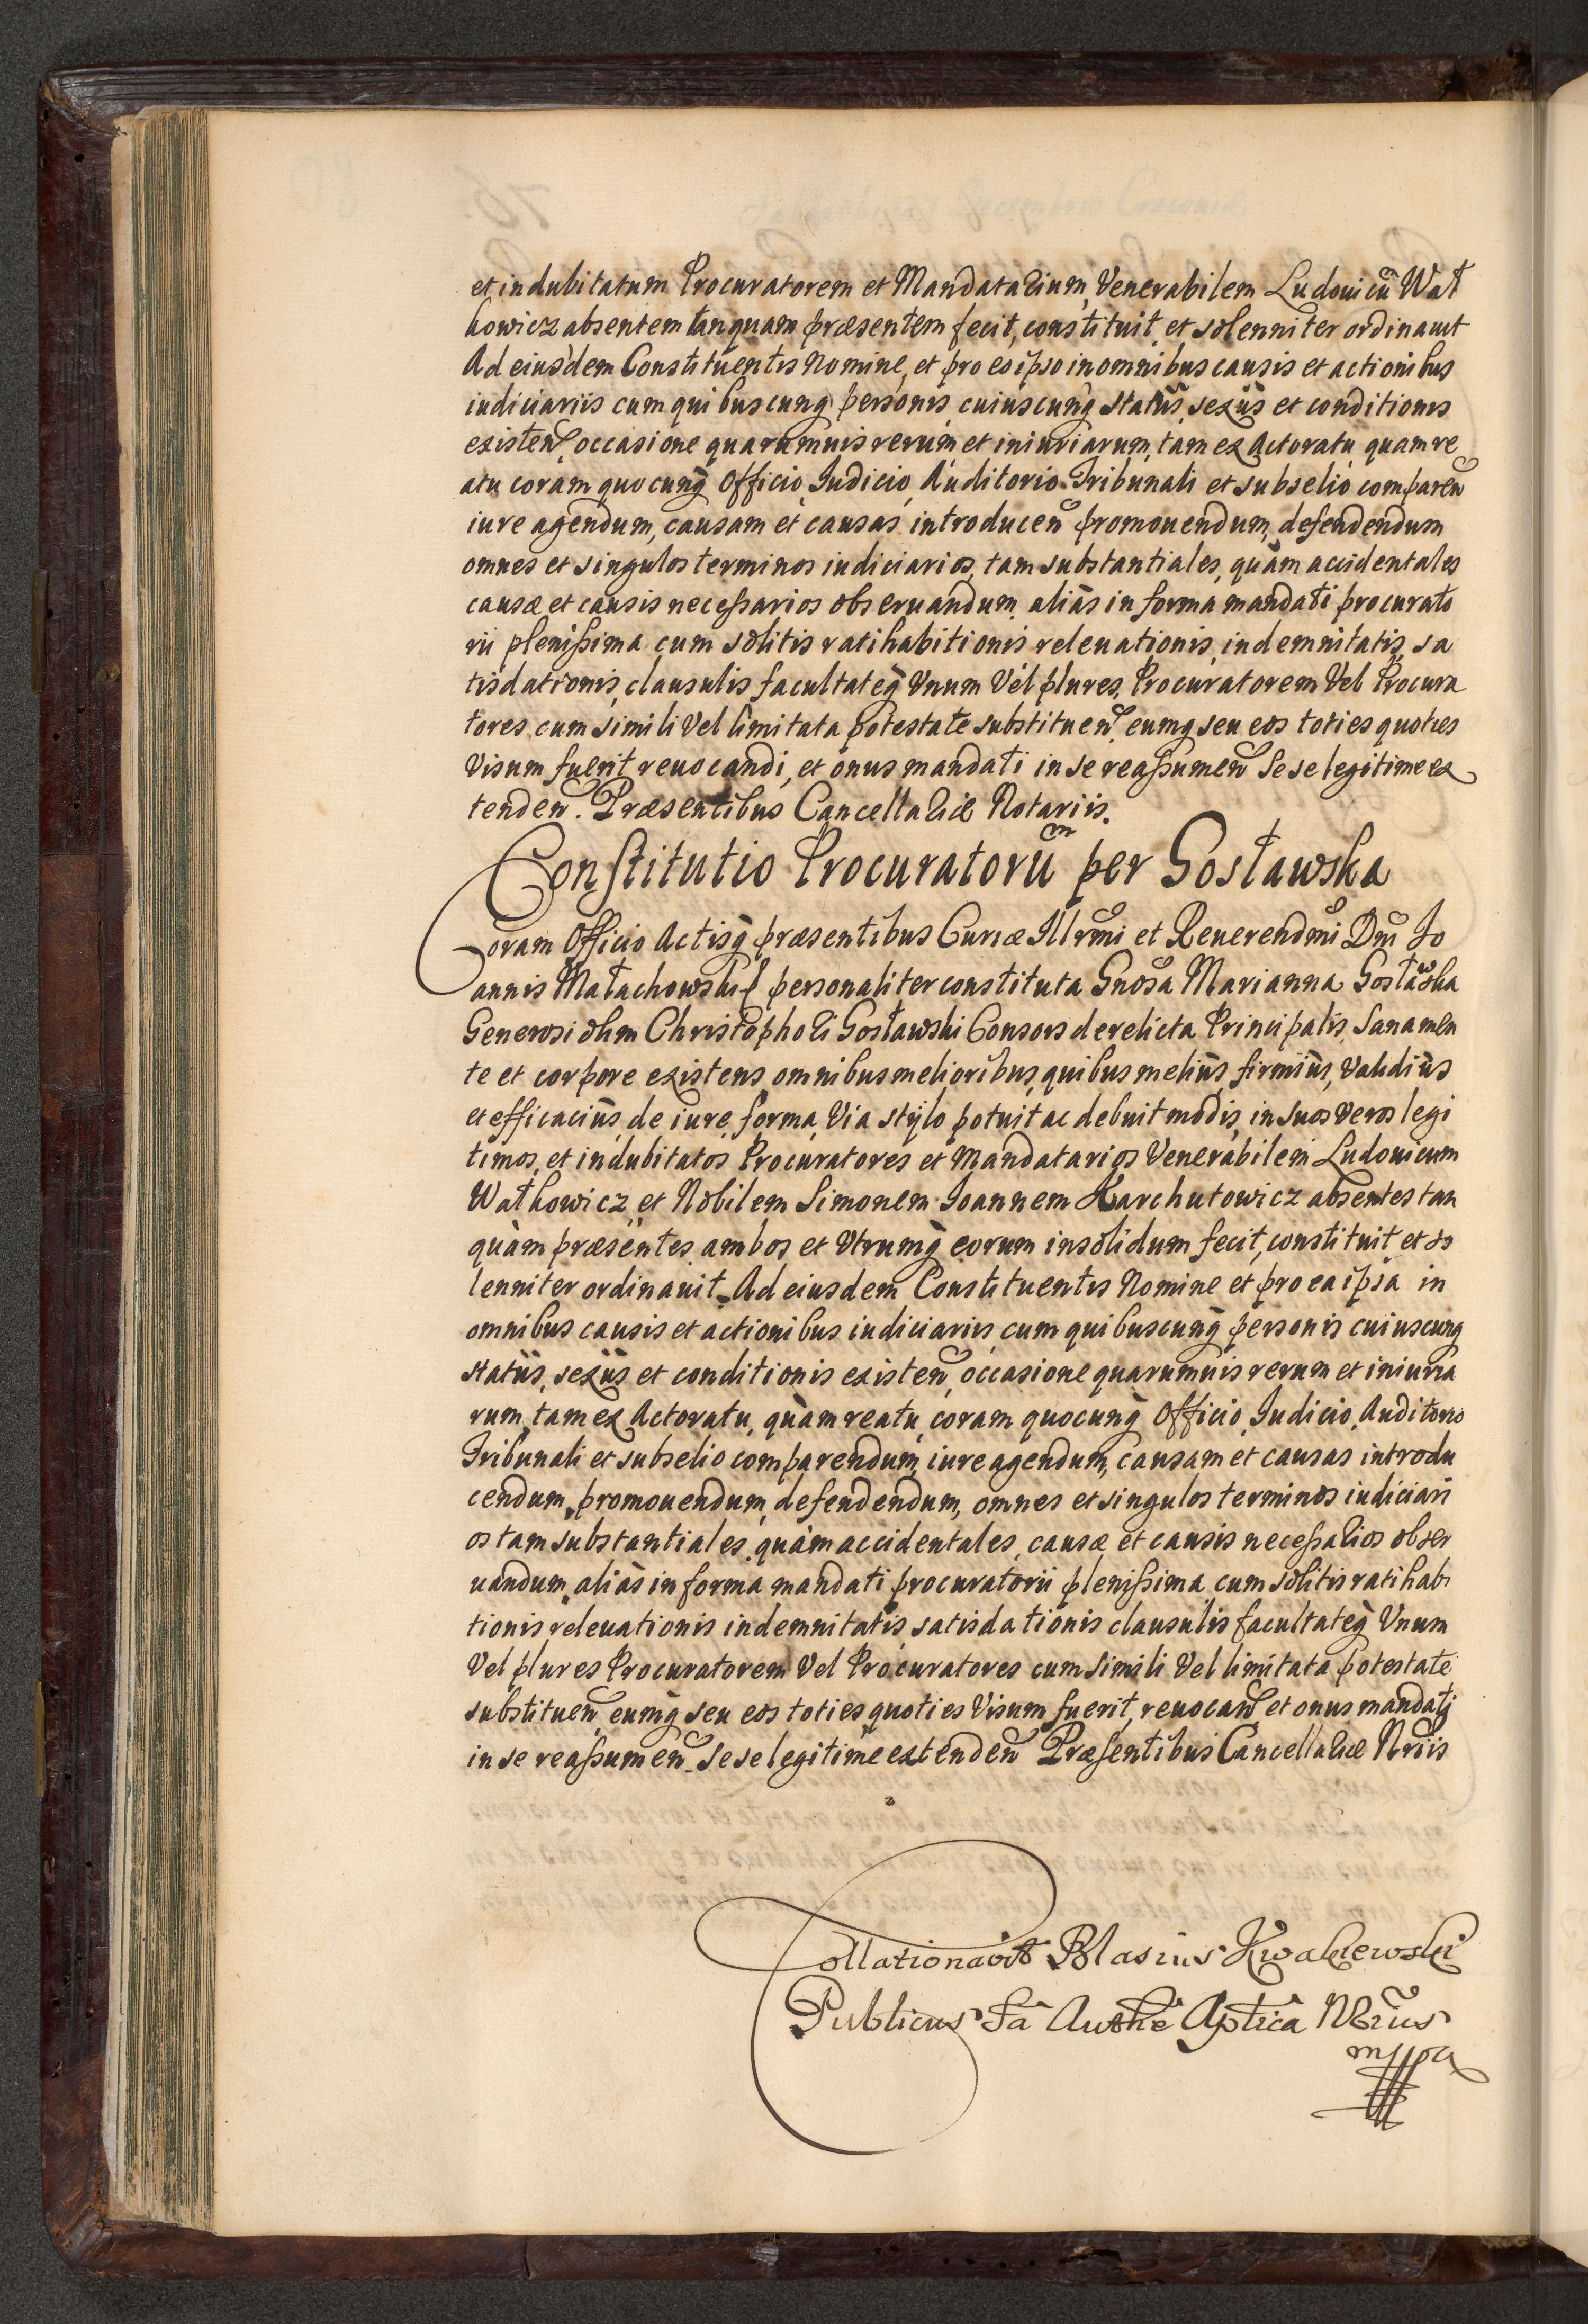 et indubitatum Procuratorem et Mandatarium, Venerabilem Ludouicũ Wał
kowicz absentem tanquam præsentem fecit, constituit, et solenniter ordinauit
Ad eiusdem Constituentis Nomine, et pro eo ipso in omnibus causis et actionibus
iudiciariis cum quibuscunq̀ personis, cuiuscunq̀ statûs, sexûs et conditionis
existen̄, occasione quarumuis rerum et iniuriarum, tam ex Actoratu quam re
atu coram quocunq̀ Officio, Iudicio, Auditorio, Tribunali et subselio comparen̄
iure agendum, causam et causas introducen̄ promouendum, defendendum
omnes et singulos terminos iudiciarios, tam substantiales, quàm accidentales
causæ et causis necessarios obseruandum, aliàs in forma mandati procurato
rii plenissima cum solitis ratihabitionis releuationis, indemnitatis, sa
tisdationis, clausulis facultateq̀ Vnum Vel plures, Procuratorem Vel Procura
tores cum simili Vel limitata potestate substituen̄, eumq seu eos toties quoties
Visum fuerit reuocandi, et onus mandati in se reassumen̄ Sese legitime ex
tenden̄. Præsentibus Cancellariæ Notariis.
Constitutio Procuratorũm per Gosławska
Coram Officio Actisq̀ præsentibus Curiæ Illrm̄i et Reuerendm̄i Dn̄i Jo
annis Małachowski personaliter constituta Gnōsa Marianna Gosławska
Generosi olim Christophori Gosławski Consors derelicta Principalis, Sana men
te et corpore existens, omnibus melioribus, quibus meliùs, firmiùs, Validiùs
et efficaciùs, de iure, forma, Via, stylo potuit ac debuit modis, in suos Veros legi
timos, et indubitatos Procuratores et Mandatarios Venerabilem Ludouicum
Wałkowicz, et Nobilem Simonem Joannem Karchutowicz absentes tan
quàm præsentes, ambos et Vtrumq̀ eorum insolidum fecit, constituit, et so
lenniter ordinauit. Ad eiusdem Constituentis Nomine et pro ea ipsa in
omnibus causis et actionibus iudiciariis, cum quibuscunq̀ personis cuiuscunq
statûs, sexûs et conditionis existen̄, occasione quarumuis rerum et iniuria
rum, tam ex Actoratu, quàm reatu, coram quocunq̀ Officio, Iudicio, Auditorio
Tribunali et subselio comparendum, iure agendum, causam et causas introdu
cendum, promouendum, defendendum, omnes et singulos terminos iudiciari
os tam substantiales, quàm accidentales, causæ et causis necessarios obser
uandum, aliàs in forma mandati procuratorii plenissima, cum solitis ratihabi
tionis, releuationis indemnitatis, satisdationis clausulis facultateq̀ Vnum
Vel plures Procuratorem Vel Procuratores cum Simili Vel limitata potestate
substituen̄, eumq̀ seu eos toties quoties Visum fuerit, reuocan̄ et onus mandati
in se reassumen̄. Sese legitime extenden̄ Præsentibus Cancellariæ Nr̄iis
Collationavit Blasius Kwakiewski
Publicus Sā Authē Aptica Nr̄ius
mppa